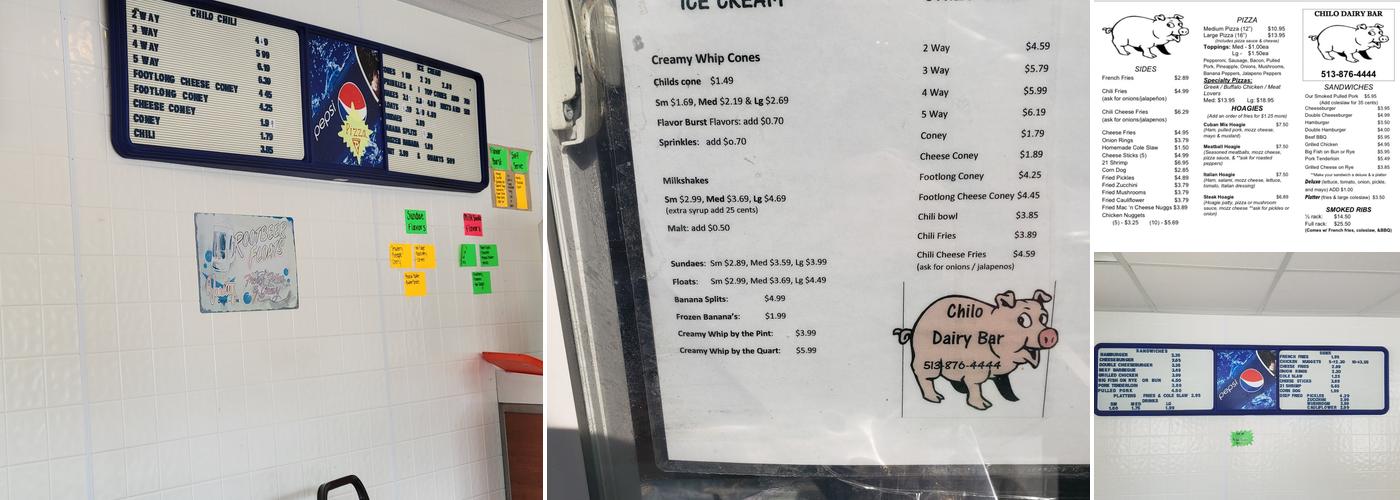 CHILO CHILI
2 WAY
3 WAY 4.9
4 WAY 5.99
5 WAY 6.19
FOOTLONG CHEESE CONEY 6.30
FOOTLONG CONEY 4.45
CHEESE CONEY 4.25
CONEY
CHILI 1.79
pepsi
PIZZA
ICE CREAM
Flavor Burst
Soft Serve
Sundae Flavors
Milkshake Flavors
ROOTBEER FLOATS
ICE CREAM
Creamy Whip Cones
Childs cone $1.49
Sm $1.69, Med $2.19 & Lg $2.69
Flavor Burst Flavors: add $0.70
Sprinkles: add $o.70
Milkshakes
Sm $2.99, Med $3.69, Lg $4.69
(extra syrup add 25 cents)
Malt: add $0.50
Sundaes: Sm $2.89, Med $3.59, Lg $3.99
Floats: Sm $2.99, Med $3.69, Lg $4.49
Banana Splits: $4.99
Frozen Banana's: $1.99
Creamy Whip by the Pint: $3.99
Creamy Whip by the Quart: $5.99
2 Way $4.59
3 Way $5.79
4 Way $5.99
5 Way $6.19
Coney $1.79
Cheese Coney $1.89
Footlong Coney $4.25
Footlong Cheese Coney $4.45
Chili bowl $3.85
Chili Fries $3.89
Chili Cheese Fries $4.59
(ask for onions / jalapenos)
Chilo
Dairy Bar
513-876-4444
SIDES
French Fries $2.89
Chili Fries $4.99
(ask for onions/jalapeños)
Chili Cheese Fries $6.29
(ask for onions/jalapenos)
Cheese Fries $4.95
Onion Rings $3.79
Homemade Cole Slaw $1.50
Cheese Sticks (5) $4.99
21 Shrimp $6.95
Corn Dog $2.85
Fried Pickles $4.89
Fried Zucchini $3.79
Fried Mushrooms $3.79
Fried Cauliflower $3.79
Fried Mac 'n Cheese Nuggs $3.89
Chicken Nuggets
(5) - $3.25 (10) - $5.69
PIZZA
Medium Pizza (12") $10.95
Large Pizza (16") $13.95
(Includes pizza sauce & cheese)
Toppings: Med - $1.00ea
Lg - $1.50ea
Pepperoni, Sausage, Bacon, Pulled
Pork, Pineapple, Onions, Mushrooms,
Banana Peppers, Jalapeno Peppers
Specialty Pizzas:
Greek / Buffalo Chicken / Meat
Lovers
Med: $13.95 Lg: $18.95
HOAGIES
(Add an order of fries for $1.25 more)
Cuban Mix Hoagie $7.50
(Ham, pulled pork, mozz cheese,
mayo & mustard)
Meatball Hoagie $7.50
(Seasoned meatballs, mozz cheese,
pizza sauce, & **ask for roasted
peppers)
Italian Hoagie $7.50
(Ham, salami, mozz cheese, lettuce,
tomato, Italian dressing)
Steak Hoagie $6.89
(Hoagie patty, pizza or mushroom
sauce, mozz cheese **ask for pickles or
onion)
CHILO DAIRY BAR
513-876-4444
SANDWICHES
Our Smoked Pulled Pork $5.95
(Add coleslaw for 35 cents)
Cheeseburger $3.95
Double Cheeseburger $4.99
Hamburger $3.50
Double Hamburger $4.00
Beef BBQ $5.95
Grilled Chicken $4.95
Big Fish on Bun or Rye $5.95
Pork Tenderloin $5.49
Grilled Cheese on Rye $3.85
**Make your sandwich a deluxe & a platter
Deluxe (lettuce, tomato, onion, pickle,
and mayo) ADD $1.00
Platter (fries & large coleslaw) $3.50
SMOKED RIBS
½ rack: $14.50
Full rack: $25.50
(Comes w/ French fries, coleslaw, &BBQ)
SANDWICHES
HAMBURGER
CHEESEBURGER
DOUBLE CHEESEBURGER
BEEF BARBEQUE
GRILLED CHICKEN
BIG FISH ON RYE OR BUN
PORK TENDERLOIN
PULLED PORK
PLATTERS FRIES & COLE SLAW 2.95
DRINKS
SM MED LG
pepsi
FRENCH FRIES
CHICKEN NUGGETS
CHEESE FRIES
ONION RINGS
COLE SLAW
CHEESE STICKS
21 SHRIMP
CORN DOG
DEEP FRIED PICKLES
ZUCCHINI
MUSHROOM
CAULIFLOWER